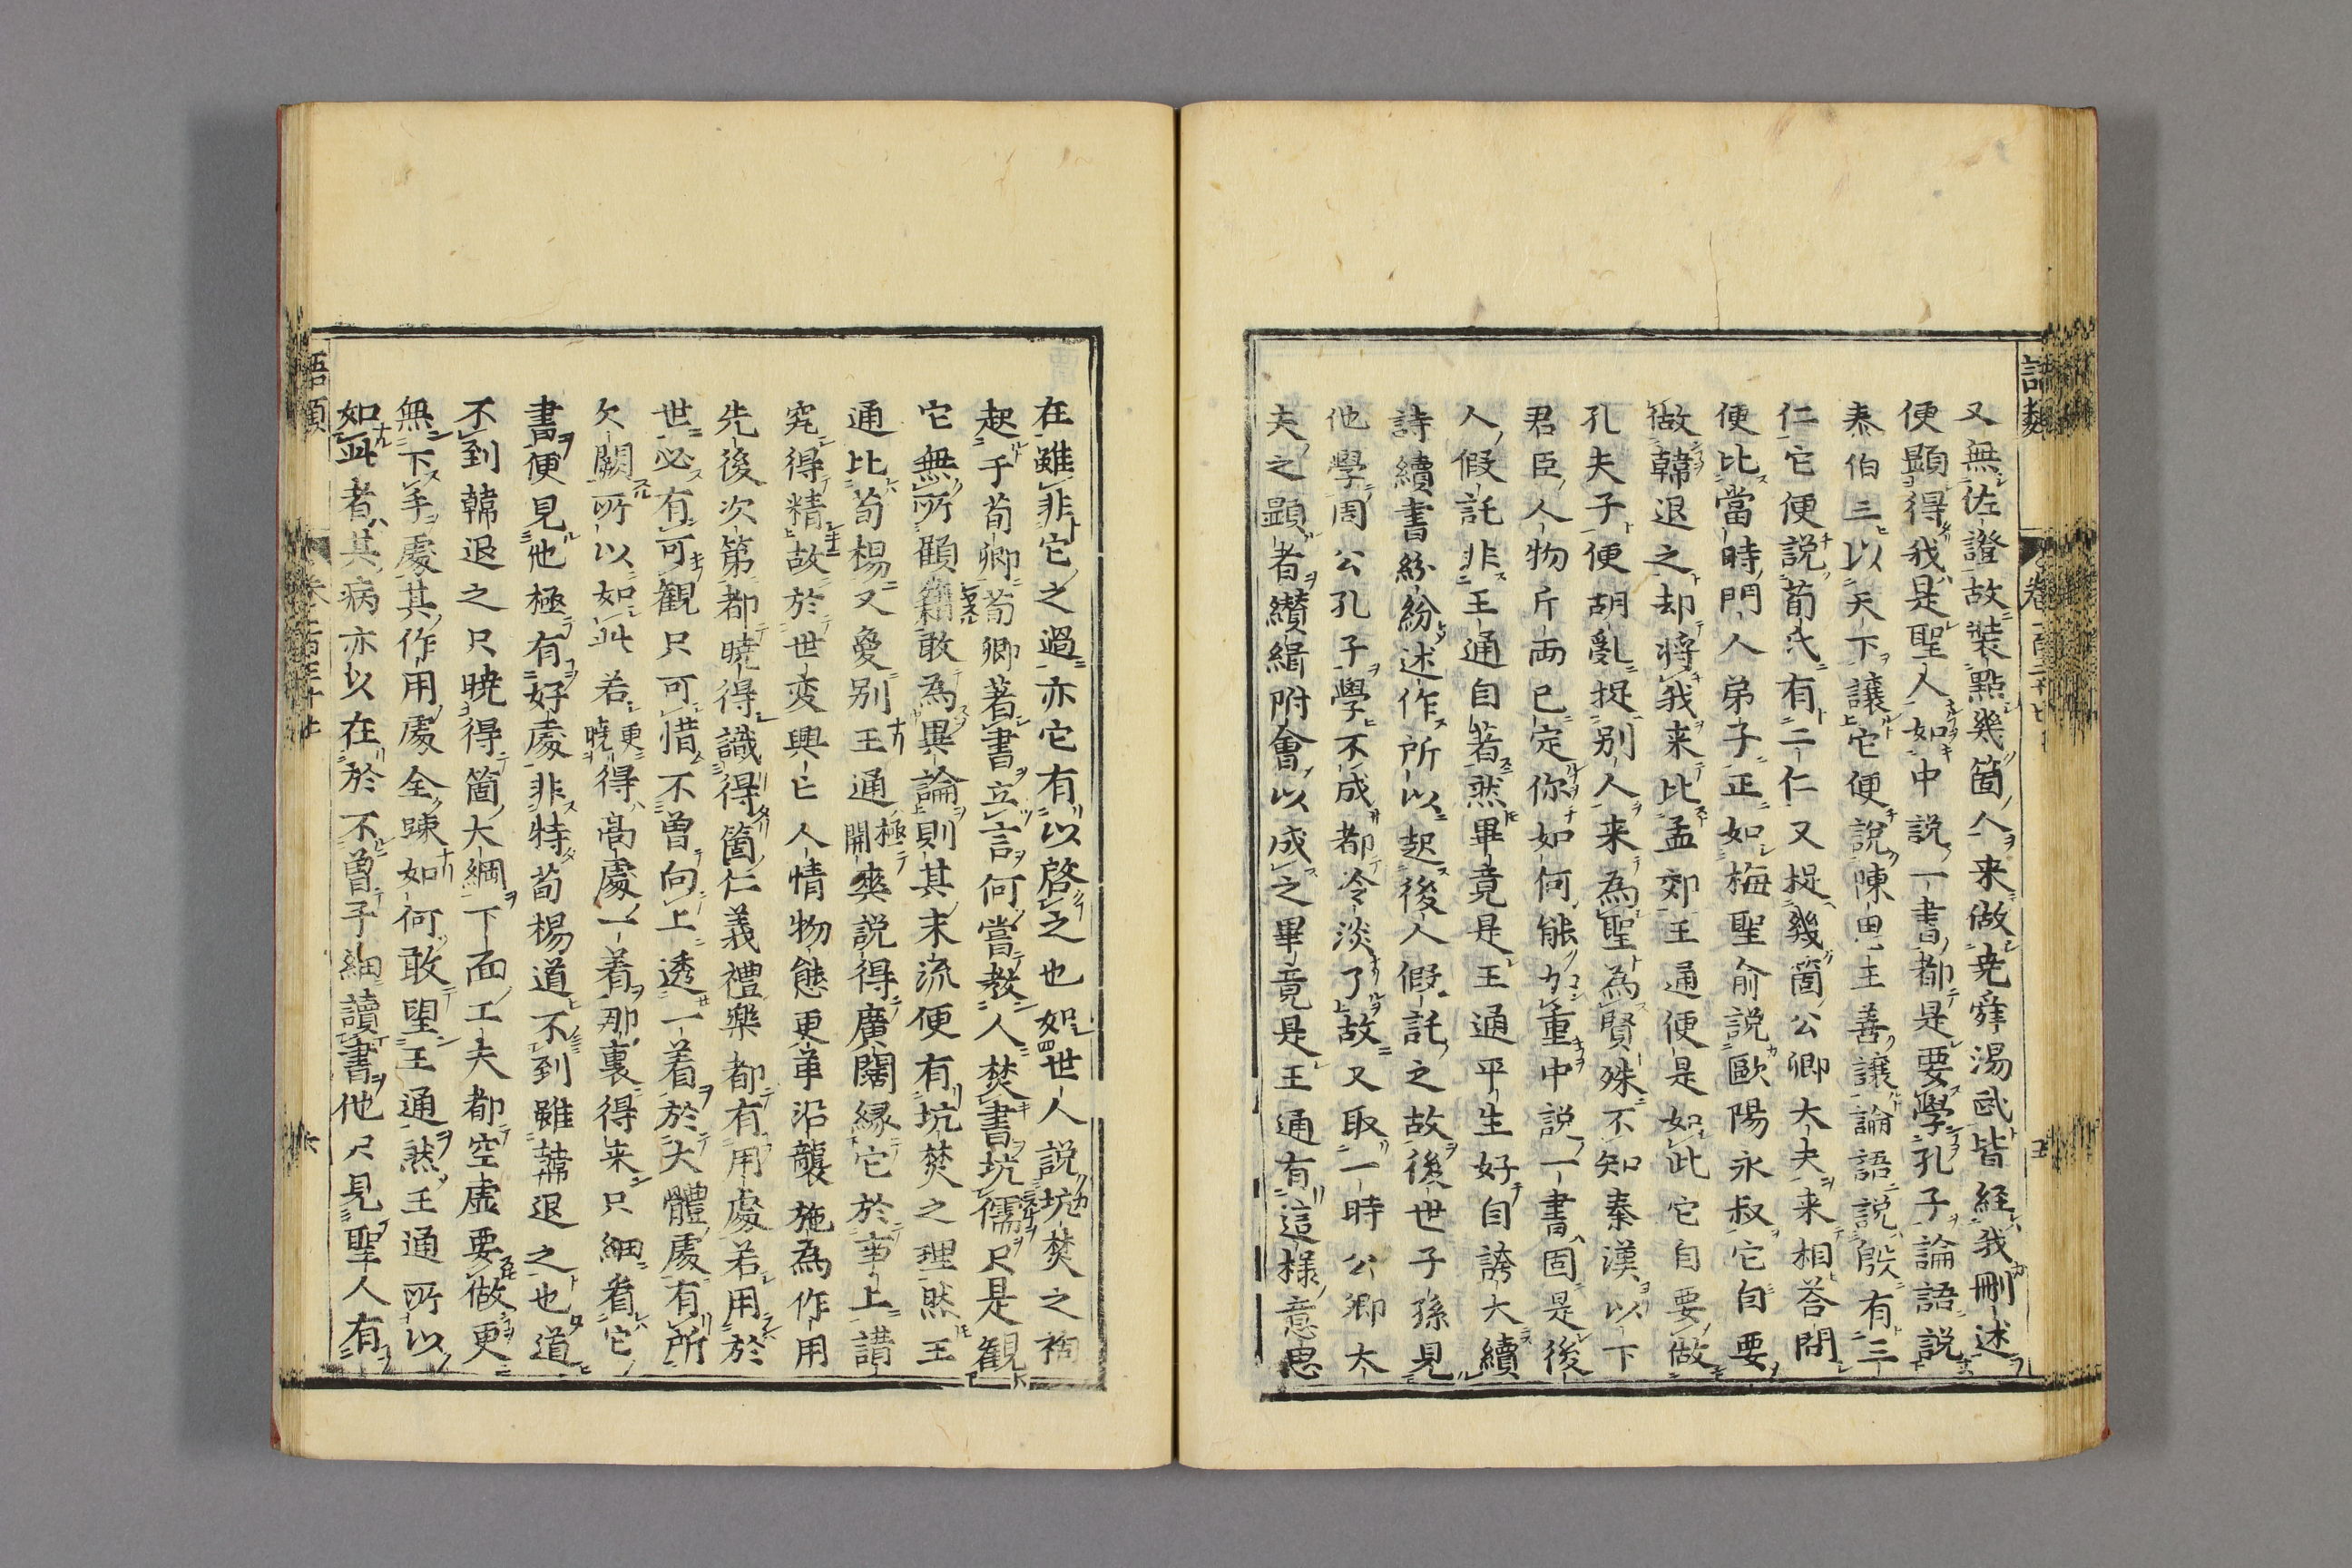 語類
卷一百三十七
五
又無佐證故裝點幾箇人来做尭舜湯武皆経我刪述
便顕得我是聖人如中説一書都是要學孔子論語説
泰伯三以天下讓它便說陳思王善讓論語説殷有三
仁它便説荀氏有二仁又捉幾箇公卿大夫来相荅問
便比當時門人弟子正如梅聖俞説歐陽永叔它自要
做韓退之却将我来比孟郊王通便是如此它自要做
孔夫子便胡亂捉別人来為聖為賢殊不知秦漢以下
君臣人物斤両已定你如何能加重中説一書固是後
人假託非王通自著然畢竟是王通平生好自誇大續
詩續書紛紛述作所以起後人假託之故後世子孫見
他學周公孔子學不成都冷淡了故又取一時公卿大
夫之顕者纉緝附會以成之畢竟是王通有這様意思
在雖非它之過亦它有以啓之也如世人説坑焚之禍
起于荀卿荀卿著書立言何嘗教人焚書坑儒只是觀
它無所顧籍敢為異論則其末流便有坑焚之理然王
通比荀楊又夐別王通極開爽説得廣闊縁它於事上講
究得精故於世変興亡人情物態更革沿襲施為作用
先後次第都暁得識得箇仁義禮樂都有用處若用於
世必有可観只可惜不曾向上透一着於大體處有所
欠闕所以如此若更曉得高處一着那裏得来只細看它
書便見他極有好處非特荀楊道不到雖韓退之也道
不到韓退之只暁得箇大綱下面工夫都空虚要做更
無下手處其作用處全踈如何敢望王通然王通所以
如此者其病亦以在於不曾子細讀書他只見聖人有
語類
卷一百三十七
六